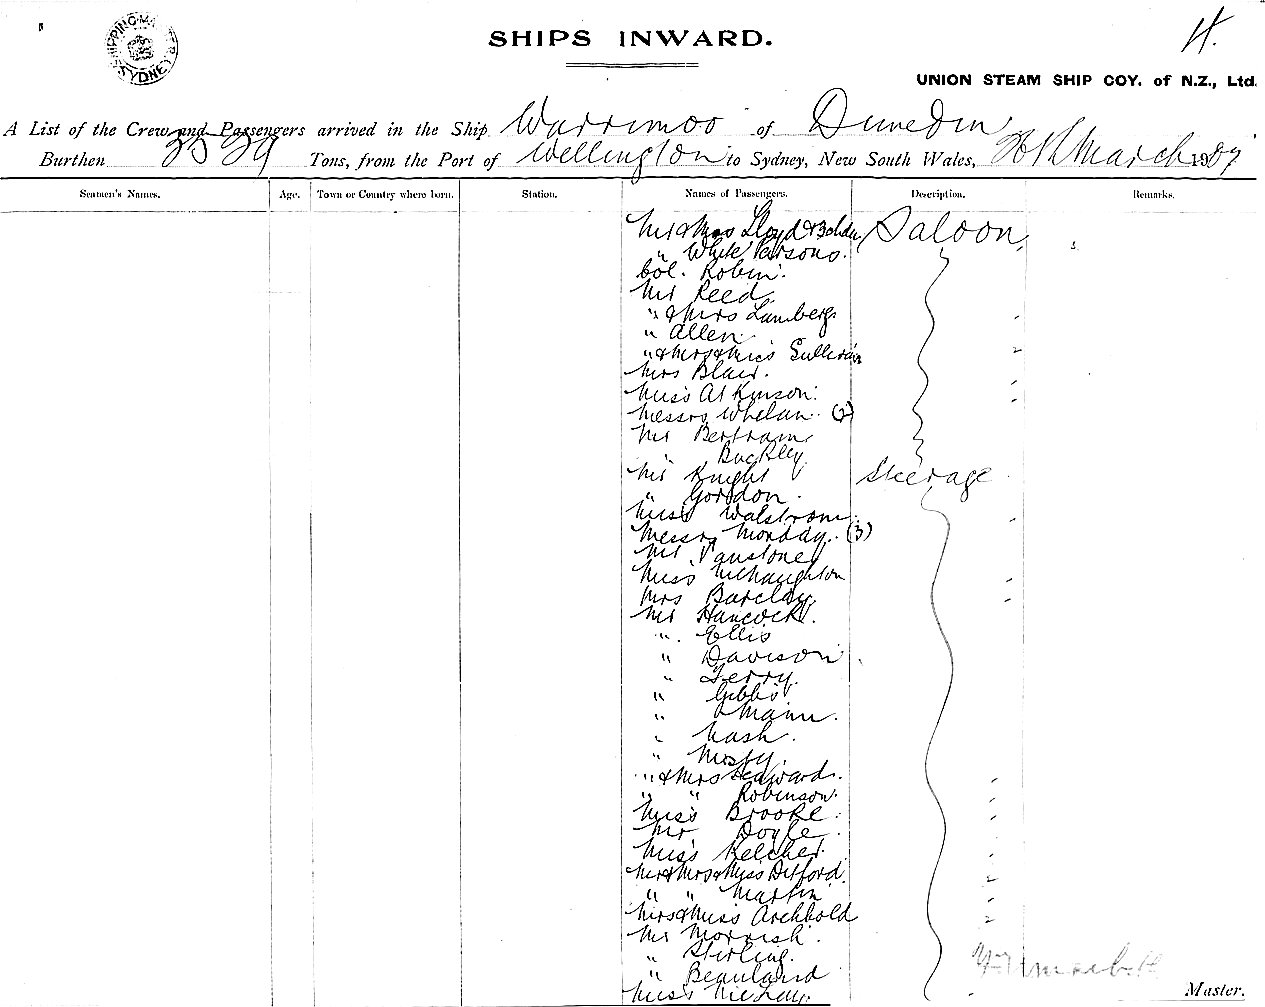 SHIPPING MASTER SYDNEY
H.
SHIPS INWARD.
UNION STEAM SHIP COY. of N.Z., Ltd.
A List of the Crew and Passengers arrived in the Ship Warrimoo of Dunedin
Burthen 3529 Tons, from the Port of Wellington to Sydney, New South Wales, March 1907
Seamen's Names. Age. Town or Country where born. Station. Names of Passengers. Description. Remarks.
Mr & Mrs Lloyd & 3 chdn. Saloon
" White Parsons.
Col. Robin.
Mr Reed
" & Mrs Lumberg
" Allen
" & Mrs & Miss Sullivan
Mrs Blair.
Miss Atkinson.
Messrs Whelan. (2)
Mr Bertram
" Buckley
Mr Knight Steerage
" Gordon.
Miss Walstrom
Messrs Monday. (3)
Mr Vanstone
Miss McNaughton
Mrs Barclay
Mr Hancock.
" Ellis
" Davison
" Terry.
" Gibbs
" Mann.
" Nash.
"
" & Mrs Seaward.
" " Robinson.
Miss Brooke.
Mr Doyle.
Miss Kelcher.
Mr & Mrs & Miss Ditford.
" " Martin
Mrs & Miss Archbold
Mr Morrish.
" Stirling.
" Beauland
Miss
Master.